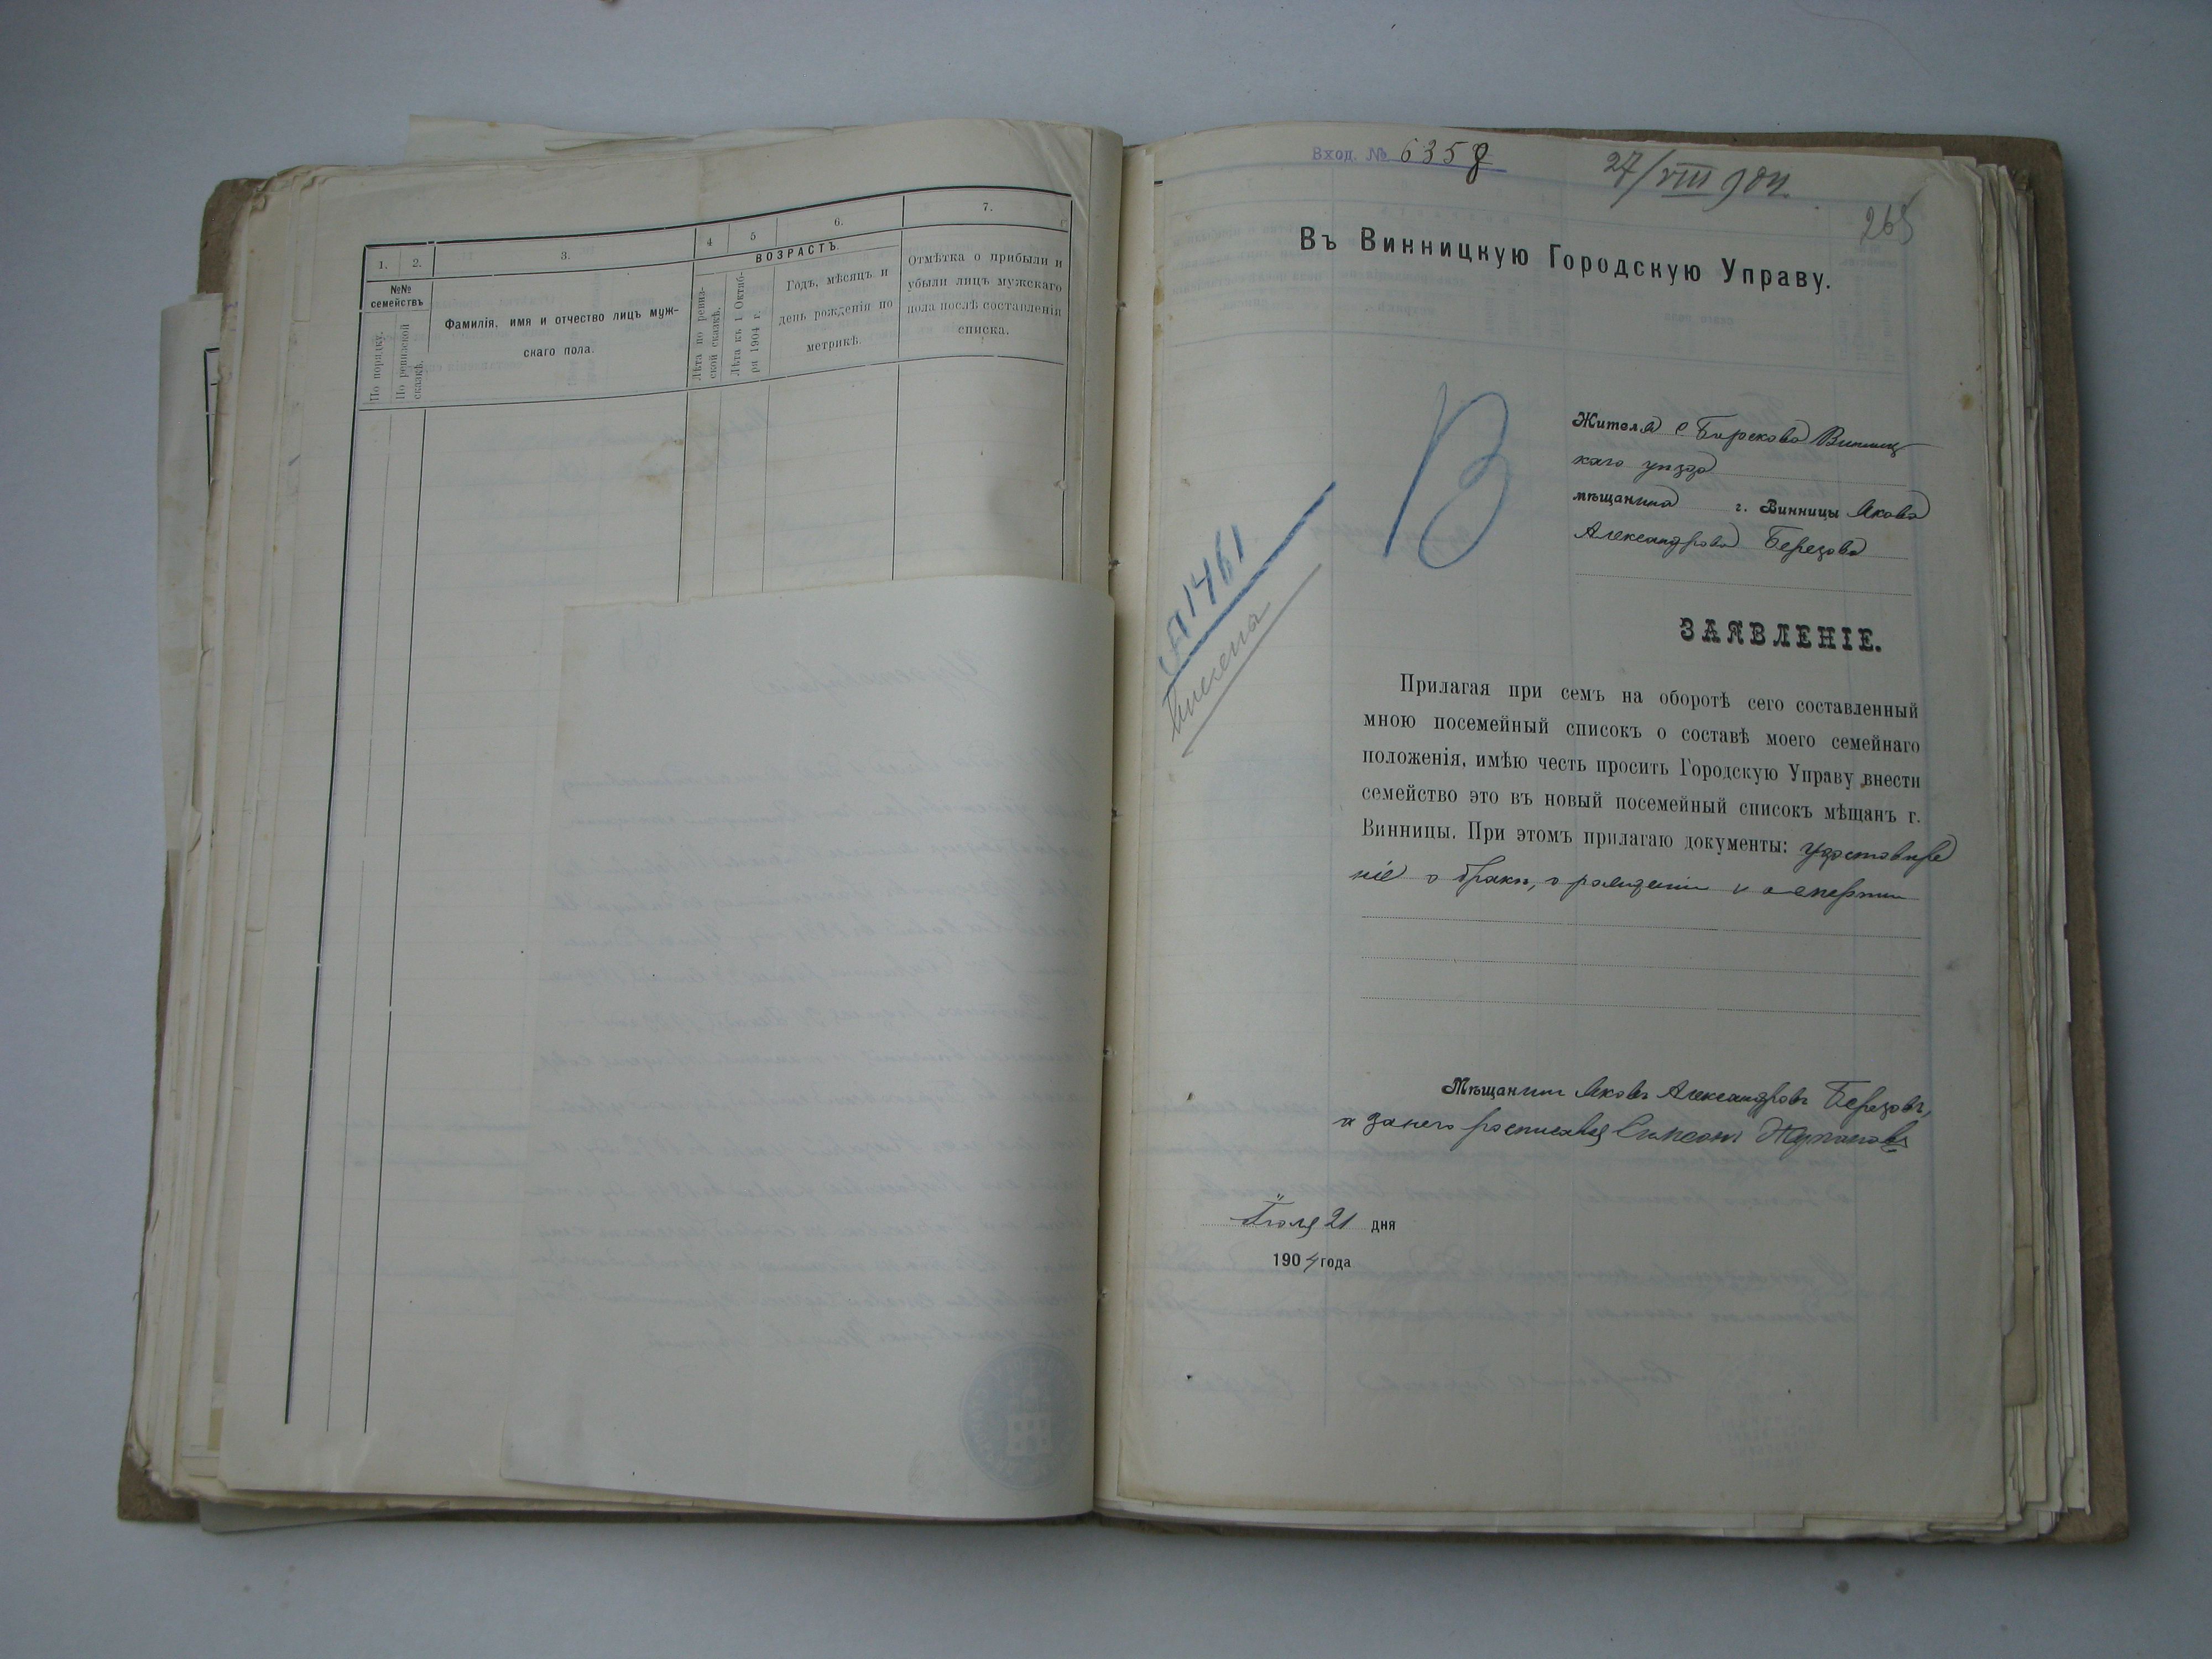 1.
2.
3.
4
5
6.
7.
№№
семействъ
По порядку.
По ревизской
сказкѣ.
Фамилія, имя и отчество лицъ муж-
скаго пола.
ВОЗРАСТЪ.
Лѣта по ревиз-
ской сказкѣ.
Лѣта къ 1 Октяб-
ря 1904 г.
Годъ, мѣсяцъ и
день рожденія по
метрикѣ.
Отмѣтка о прибыли и
убыли лицъ мужскаго
пола послѣ составленія
списка.
Вход. № 6358
27/VIII 904.
265
Въ Винницкую Городскую Управу.
В
Жителя с Бирекова Винниц
каго уѣзда
мѣщанина г. Винницы Якова
Александрова Березова
№1461
ЗАЯВЛЕНІЕ.
Прилагая при семъ на оборотѣ сего составленный
мною посемейный списокъ о составѣ моего семейнаго
положенія, имѣю честь просить Городскую Управу внести
семейство это въ новый посемейный списокъ мѣщанъ г.
Винницы. При этомъ прилагаю документы: удостовѣре
ніе о бракѣ, о рожденіи и о смерти
Мѣщанинъ Яковъ Александровъ Березовъ,
а за него росписався Симеонъ
Іюля 21 дня
1904 года